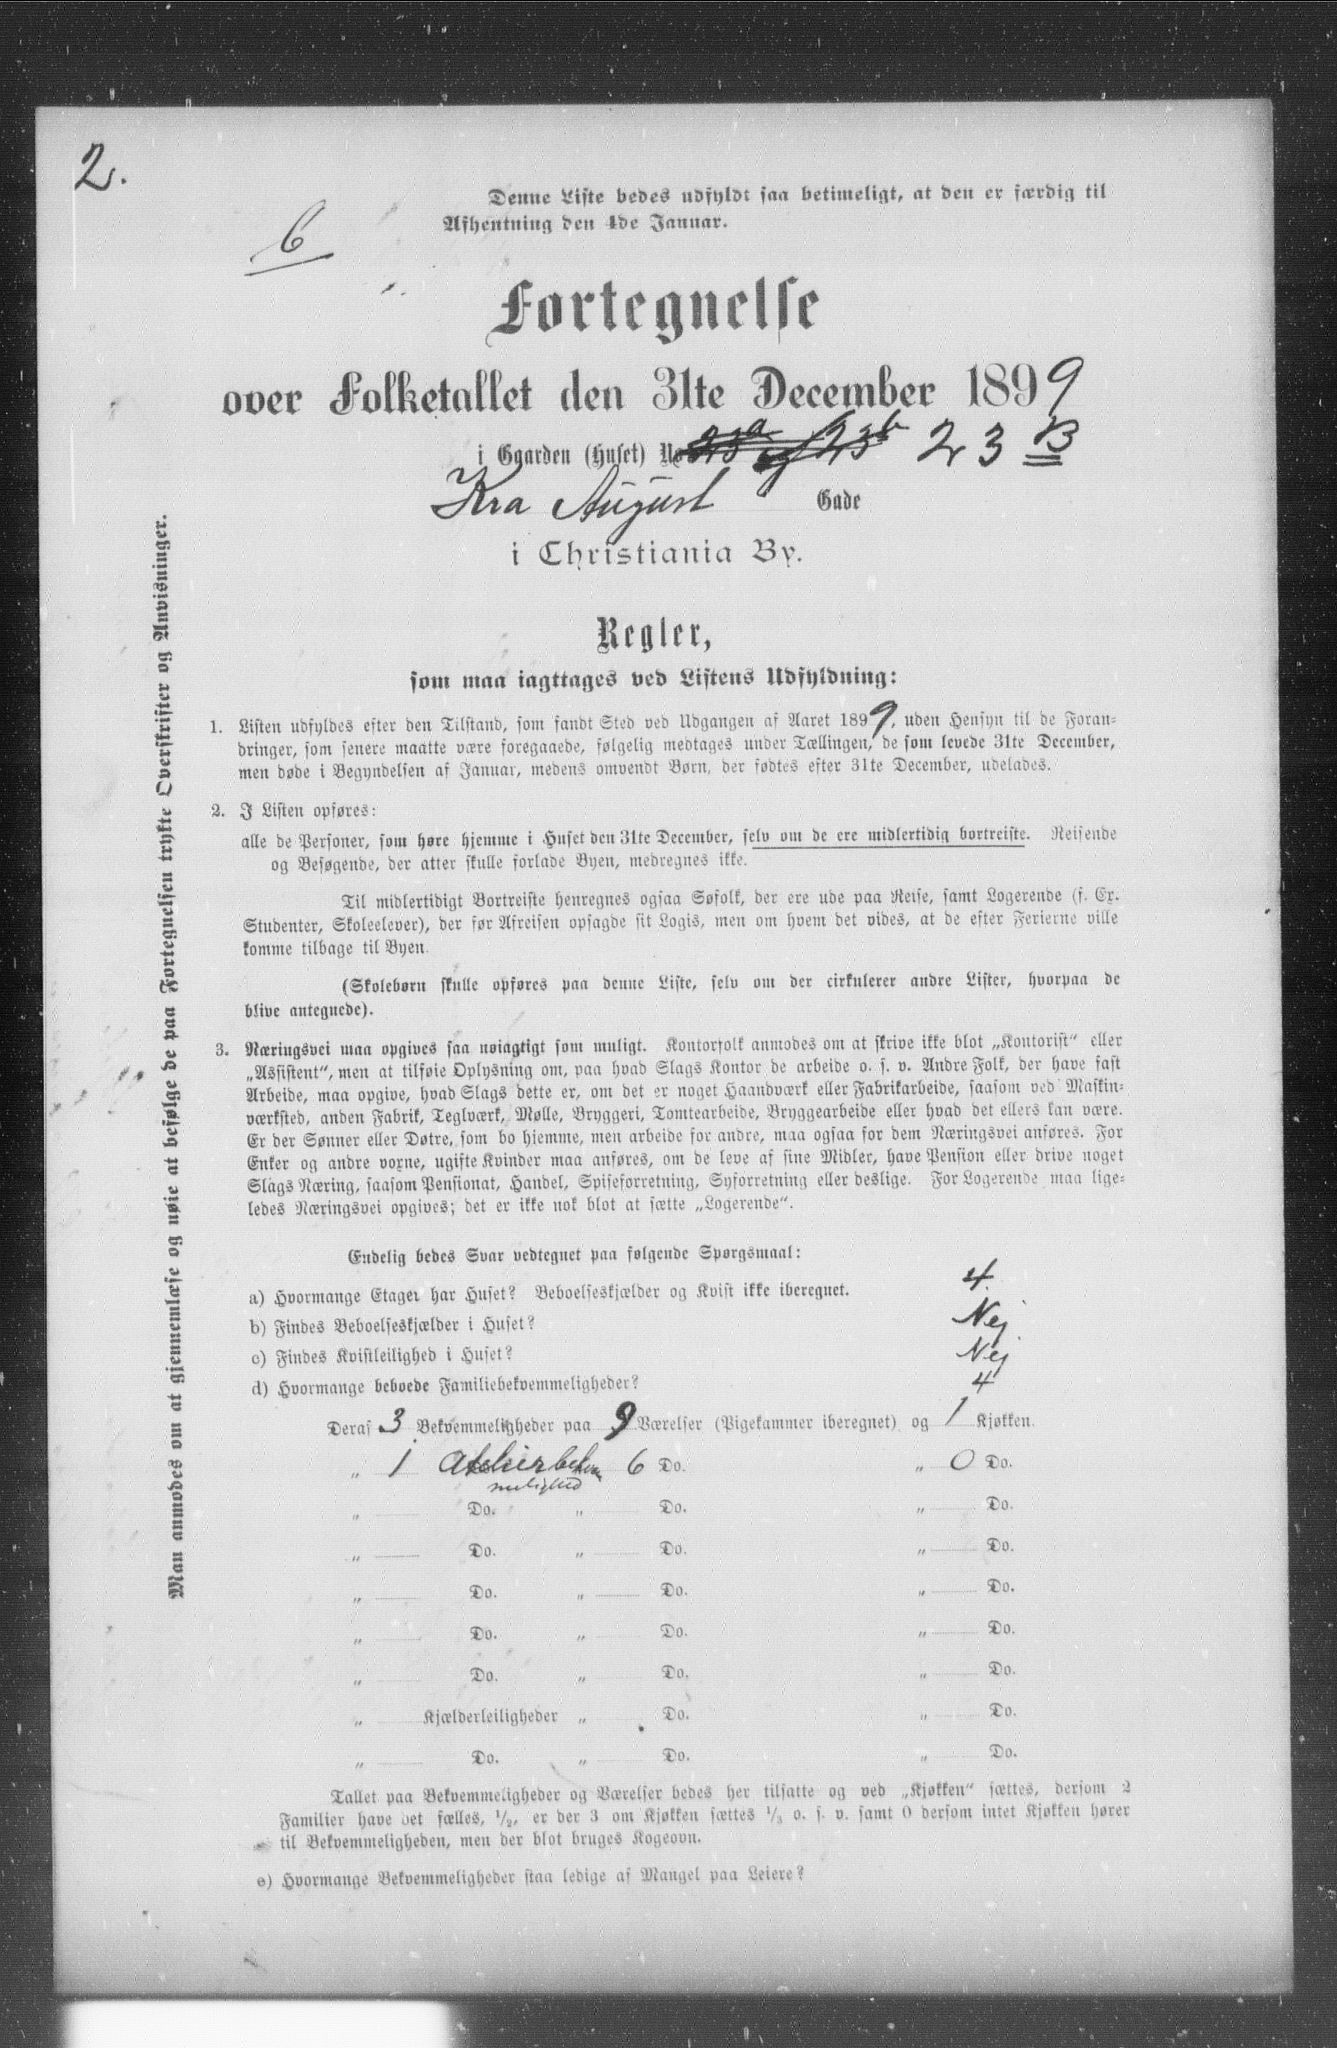 2.
6
Denne Liste bedes udfyldt saa betimeligt, at den er færdig til
Afhentning den 4de Januar.
Fortegnelse
over Folketallet den 31te December 1899
i Ggarden (Huset) No 23a og 23b 23 B
Kra August Gade
i Christiania By.
Regler,
som maa iagttages ved Listens Udfyldning:
1. Listen udfyldes efter den Tilstand, som fandt Sted ved Udgangen af Aaret 1899, uden Hensyn til de Foran-
dringer, som senere maatte være foregaaede, følgelig medtages under Tællingen, de som levede 31te December,
men døde i Begyndelsen af Januar, medens omvendt Børn, der fødtes efter 31te December, udelades.
2. I Listen opføres:
alle de Personer, som høre hjemme i Huset den 31te December, selv om de ere midlertidig bortreiste. Reisende
og Besøgende, der atter skulle forlade Byen, medregnes ikke.
Til midlertidigt Bortreiste henregnes ogsaa Søfolk, der ere ude paa Reise, samt Logerende (f. Ex.
Studenter, Skoleelever), der før Afreisen opsagde sit Logis, men om hvem det vides, at de efter Ferierne ville
komme tilbage til Byen.
(Skolebørn skulle opføres paa denne Liste, selv om der cirkulerer andre Lister, hvorpaa de
blive antegnede).
3. Næringsvei maa opgives saa nøiagtigt som muligt. Kontorfolk anmodes om at skrive ikke blot „Kontorist“ eller
„Assistent“, men at tilføie Oplysning om, paa hvad Slags Kontor de arbeide o. s. v. Andre Folk, der have fast
Arbeide, maa opgive, hvad Slags dette er, om det er noget Haandværk eller Fabrikarbeide, saasom ved Maskin-
værksted, anden Fabrik, Teglværk, Mølle, Bryggeri, Tomtearbeide, Bryggearbeide eller hvad det ellers kan være.
Er der Sønner eller Døtre, som bo hjemme, men arbeide for andre, maa ogsaa for dem Næringsvei anføres. For
Enker og andre voxne, ugifte Kvinder maa anføres, om de leve af sine Midler, have Pension eller drive noget
Slags Næring, saasom Pensionat, Handel, Spiseforretning, Syforretning eller deslige. For Logerende maa lige-
ledes Næringsvei opgives; det er ikke nok blot at sætte „Logerende“.
Endelig bedes Svar vedtegnet paa følgende Spørgsmaal:
a) Hvormange Etager har Huset? Beboelseskjælder og Kvist ikke iberegnet. 4.
b) Findes Beboelseskjælder i Huset? Nej
c) Findes Kvistleilighed i Huset? Nej
d) Hvormange beboede Familiebekvemmeligheder? 4
Deraf 3 Bekvemmeligheder paa 9 Værelser (Pigekammer iberegnet) og 1 Kjøkken.
„ 1 Atelierbekvem 6 Do. „ 0 Do.
melighed
„ Do. „ Do. „ Do.
„ Do. „ Do. „ Do.
„ Do. „ Do. „ Do.
„ Do. „ Do. „ Do.
„ Do. „ Do. „ Do.
„ Kjælderleiligheder „ Do. „ Do.
„ Do. „ Do. „ Do.
Tallet paa Bekvemmeligheder og Værelser bedes her tilsatte og ved „Kjøkken“ sættes, dersom 2
Familier have det fælles, 1/2, er der 3 om Kjøkken sættes 1/3 o. s. v. samt 0 dersom intet Kjøkken hører
til Bekvemmeligheden, men der blot bruges Kogeovn.
e) Hvormange Bekvemmeligheder staa ledige af Mangel paa Leiere?
Man anmodes om at gjennemlæse og nøie at befølge de paa Fortegnelsen trykte Overskrifter og Anvisninger.